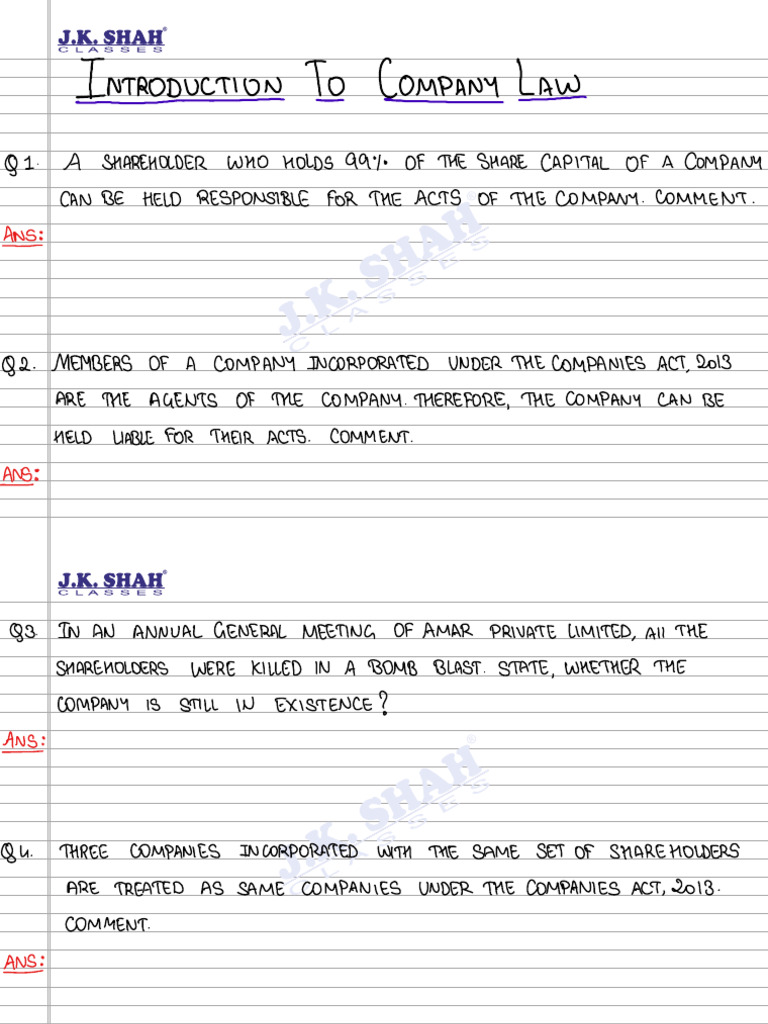 J.K. SHAH®
CLASSES
INTRODUCTION TO COMPANY LAW
Q1. A SHAREHOLDER WHO HOLDS 99% OF THE SHARE CAPITAL OF A COMPANY
CAN BE HELD RESPONSIBLE FOR THE ACTS OF THE COMPANY. COMMENT.
ANS:
J.K. SHAH®
CLASSES
Q2. MEMBERS OF A COMPANY INCORPORATED UNDER THE COMPANIES ACT, 2013
ARE THE AGENTS OF THE COMPANY. THEREFORE, THE COMPANY CAN BE
HELD LIABLE FOR THEIR ACTS. COMMENT.
ANS:
J.K. SHAH®
CLASSES
Q3 IN AN ANNUAL GENERAL MEETING OF AMAR PRIVATE LIMITED, All THE
SHAREHOLDERS WERE KILLED IN A BOMB BLAST. STATE, WHETHER THE
COMPANY IS STILL IN EXISTENCE?
ANS:
J.K. SHAH®
CLASSES
Q4. THREE COMPANIES INCORPORATED WITH THE SAME SET OF SHAREHOLDERS
ARE TREATED AS SAME COMPANIES UNDER THE COMPANIES ACT, 2013.
COMMENT.
ANS: